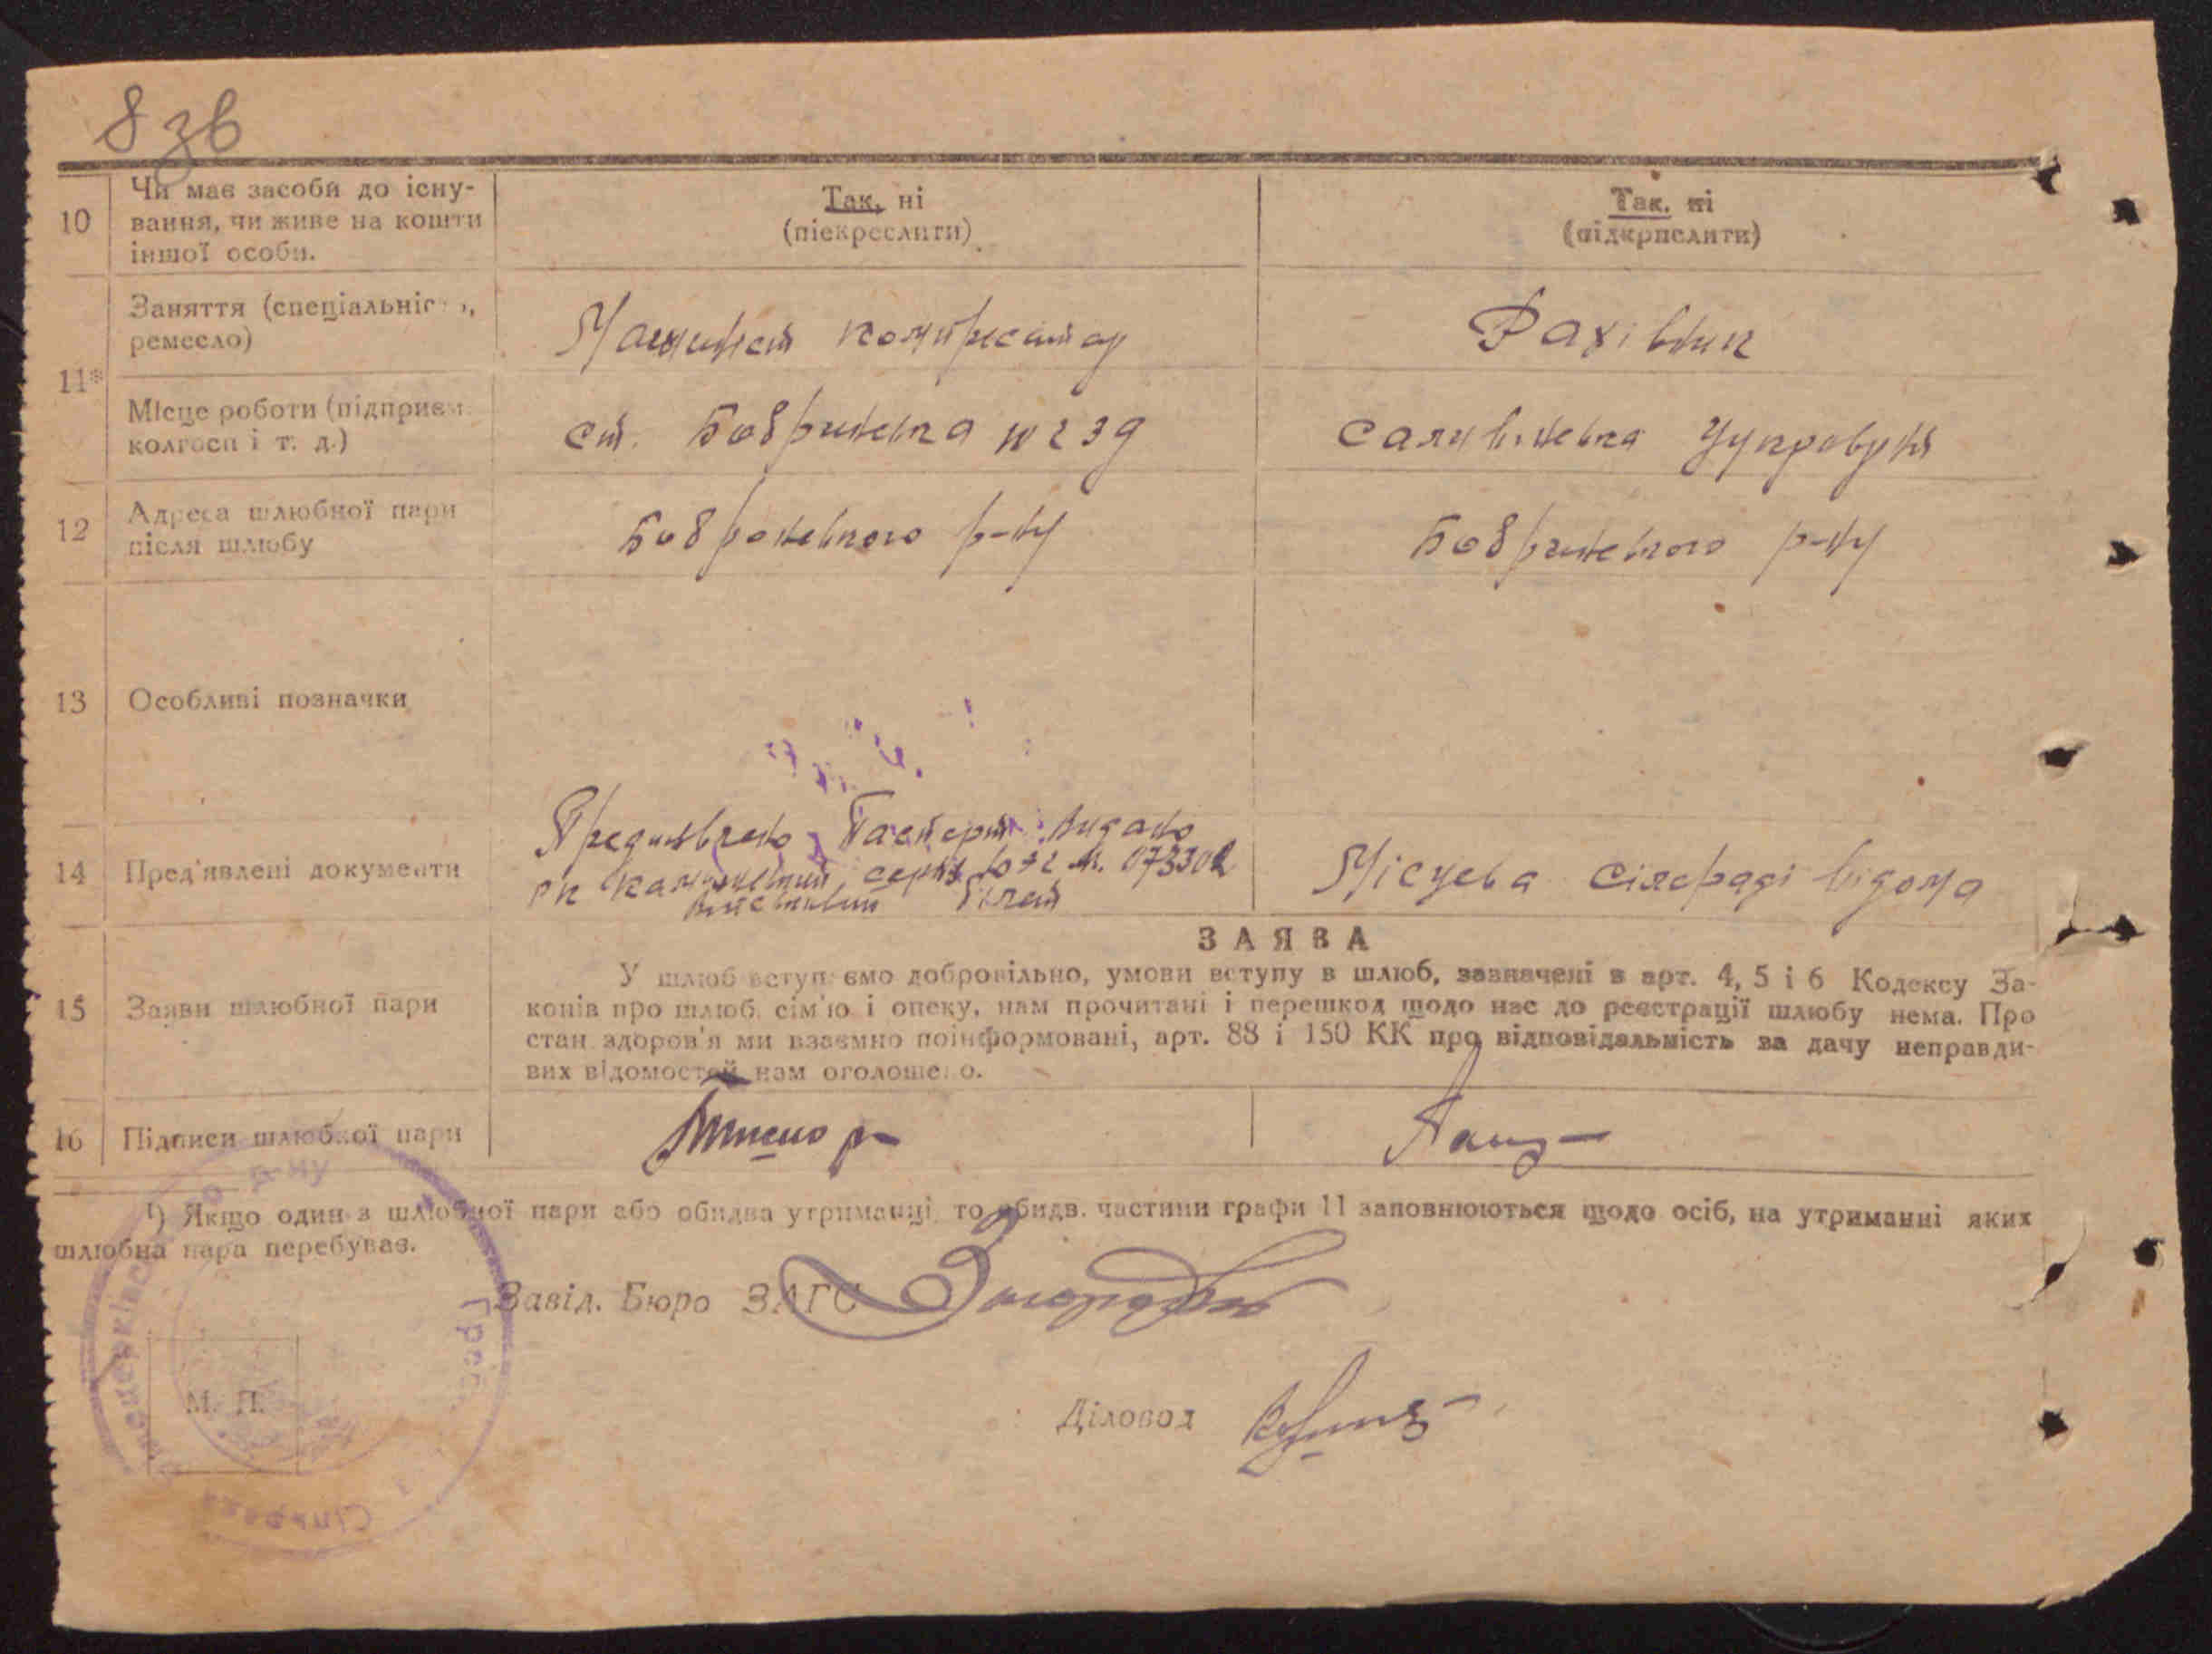 8 зв
10 Чи має засоби до існу-
вання, чи живе на кошти
іншої особи.
Так, ні
(піекреслити)
Так. ні
(підкрпслити)
11* Заняття (спеціальніс , 
ремесло)
Машиніст компресатор
Рахівник
Місце роботи (підприєм.
колгосп і т. д.)
ст. Бобринська
12 Адреса шлюбної пари
після шлюбу
р-ну
р-ну
13 Особливі позначки
14 Пред'явлені документи
Предявлено Паспорт видано
РК серия 073302
білет
Місцева сілсраді відома
ЗАЯВА
15 Заяви шлюбної пари
У шлюб вступ ємо добровільно, умови вступу в шлюб, зазначені в арт. 4, 5 і 6 Кодексу За-
конів про шлюб, сім'ю і опеку, нам прочитані і перешкод щодо нас до реєстрації шлюбу нема. Про
стан здоров'я ми взаємно поінформовані, арт. 88 і 150 КК про відповідальність за дачу неправди-
вих відомостей нам оголоше о.
16 Підписи шлюбної пари
¹) Якщо один з шлюбної пари або обидва утриманці, то обидв. частини графи 11 заповнюються щодо осіб, на утриманні яких
шлюбна пара перебуває.
Завід. Бюро ЗАГС
М. П.
Діловод